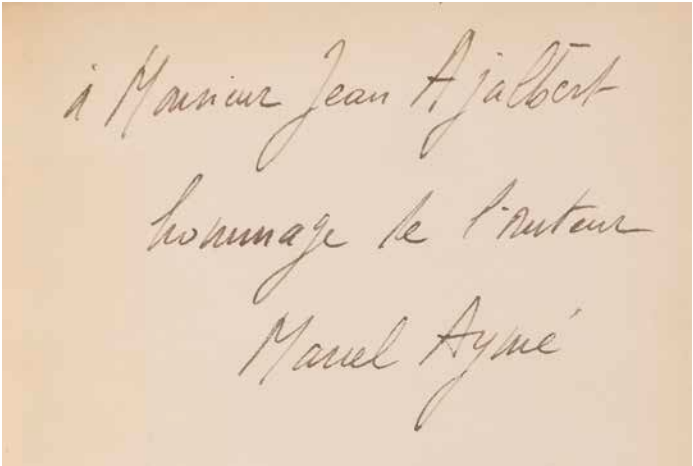 à Monsieur Jean Ajalbert
hommage de l'auteur
Marcel Aymé